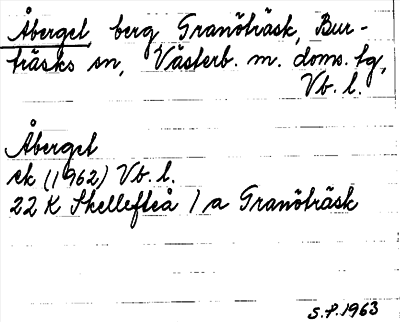 Åberget, berg Granöträsk, Bur-
träsks sn, Västerb. m. doms. tg,
Vb. l.
Åberget
ek (1962) Vb. l.
22 K Skellefteå / a Granöträsk
S.P. 1963